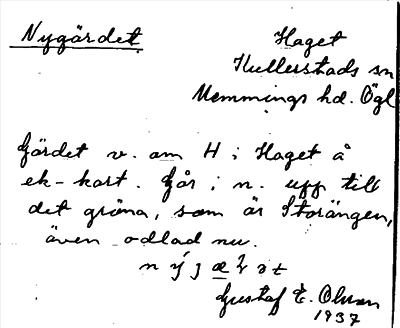 Nygärdet
Haget
Kullerstads sn
Memmings hd. Ögl
Gärdet v. om H i Haget å
ek-kart. Går i n. upp till
det gröna, som är Storängen,
även odlad nu.
Gustaf E. Olson
1937